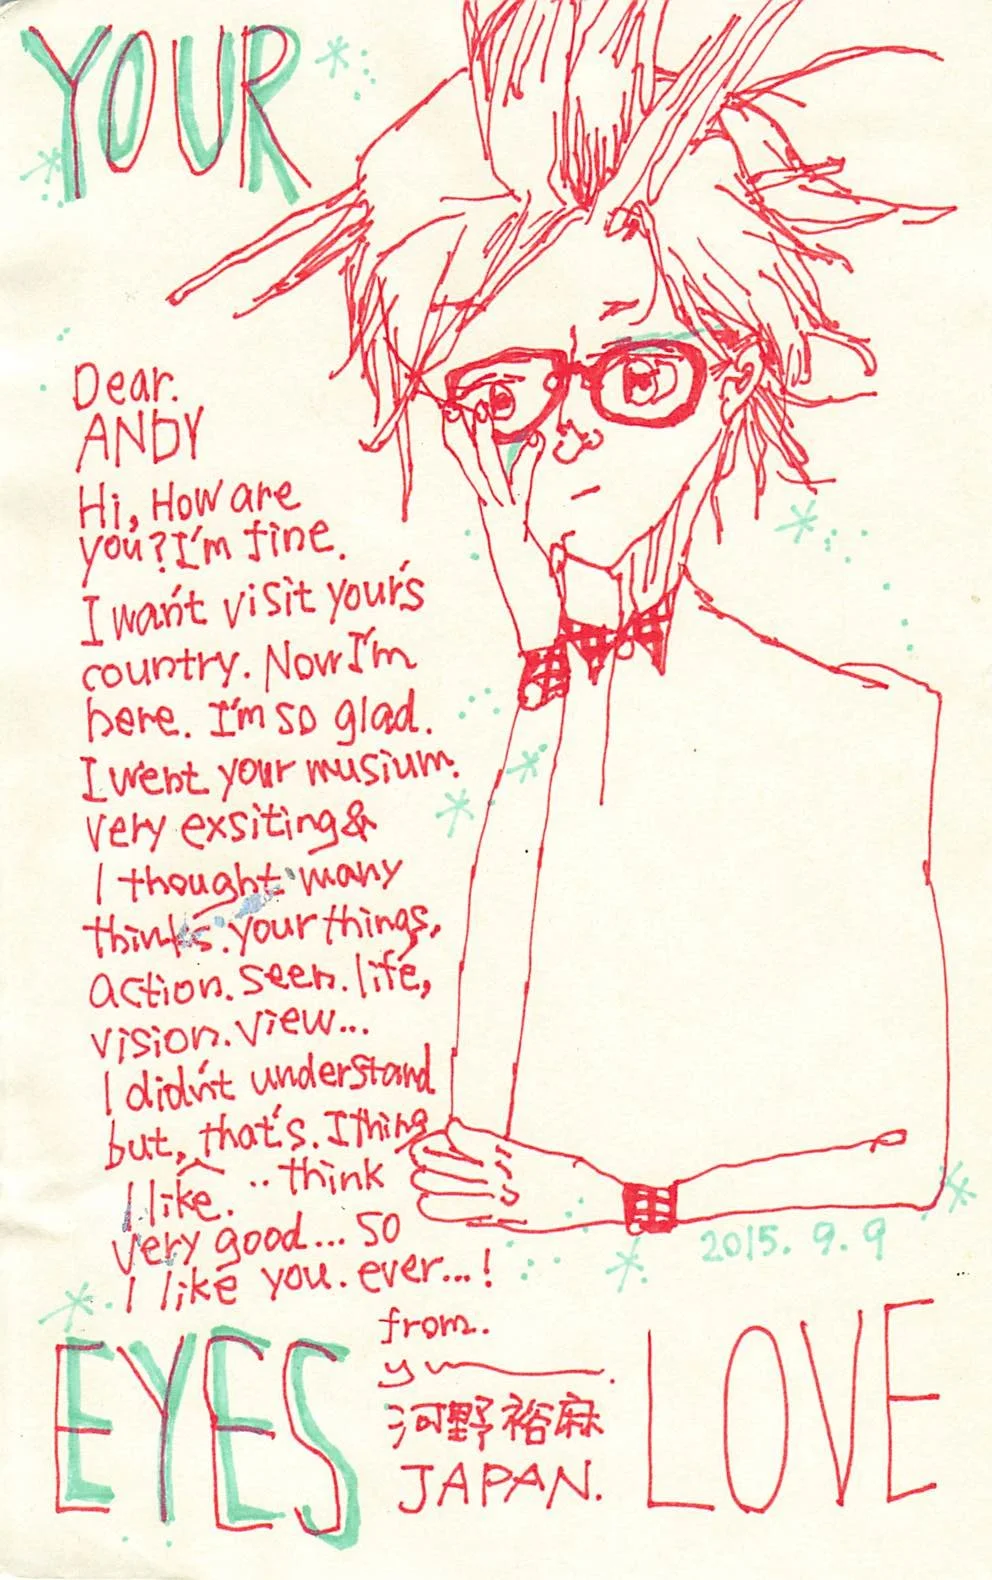 YOUR
Dear.
ANDY
Hi, How are
you? I'm fine.
I wan't visit your's
country. Now I'm
here. I'm so glad.
I went your musium.
very exsiting &
I thought many
think's. your things,
action. seen. life,
vision. view...
I didn't understand
but, that's. I thing
I like. ..think
very good... so
I like you. ever...!
2015. 9. 9
from.
yu
河野裕麻
JAPAN.
EYES LOVE